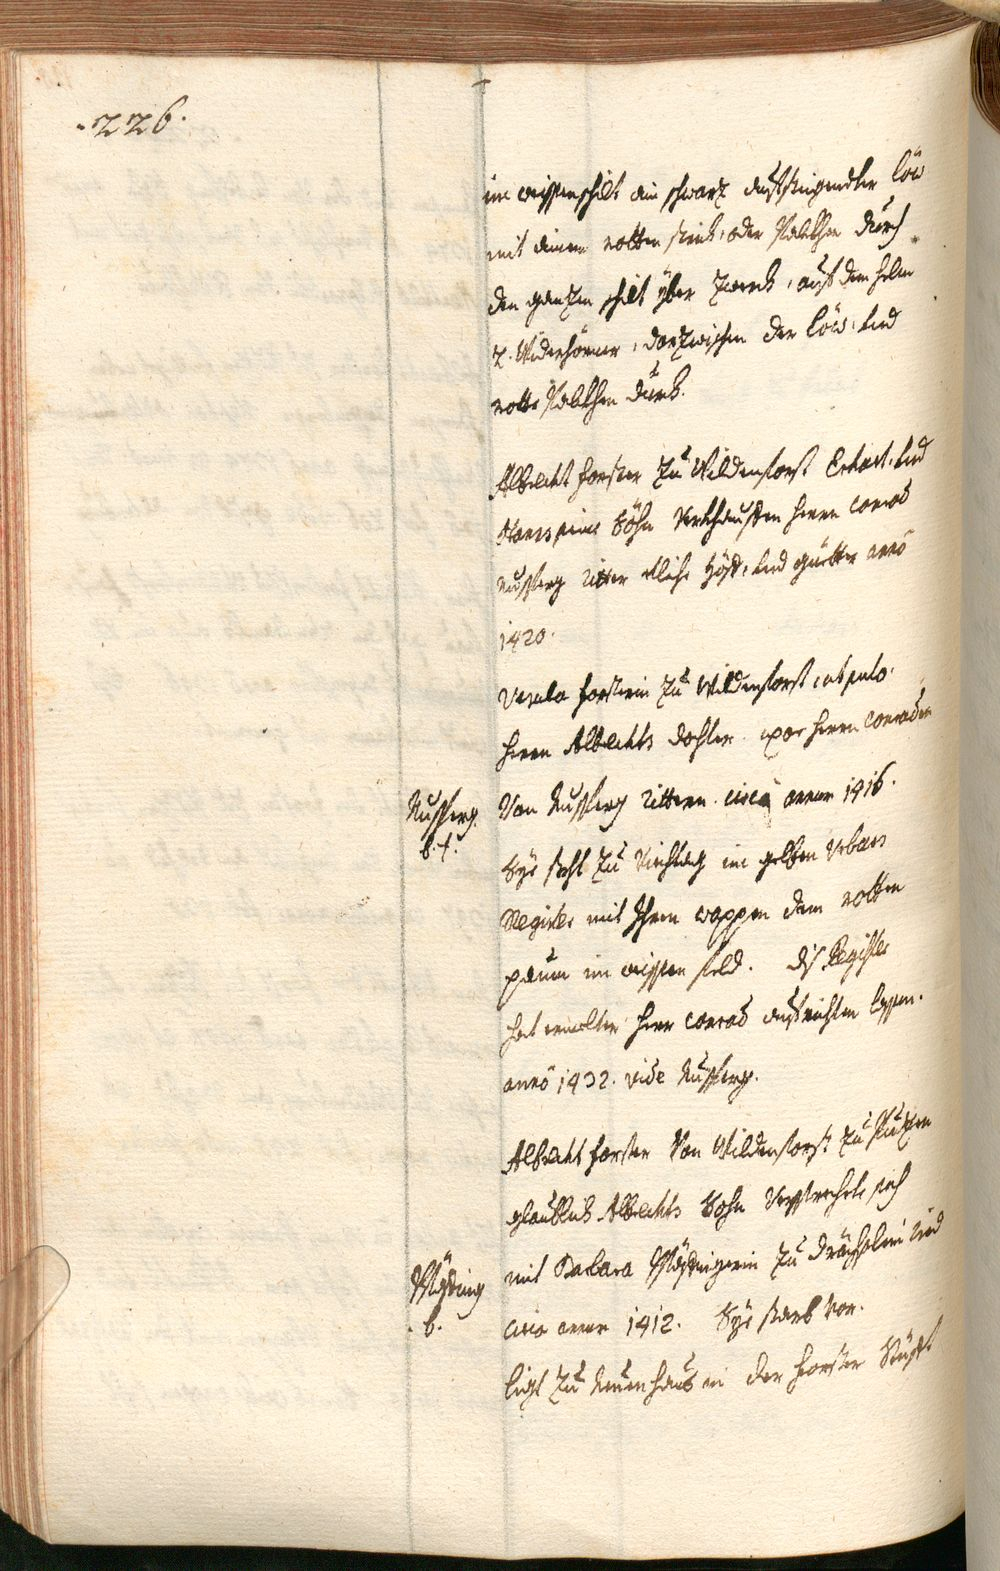 .226.
im weissen schilt ain schwarz aufsteigendter löw
mit ainem rotten strich, oder Palckhen durch
den ganzen schilt yber zwerch, auf dem helm
2. Widerhörner, darzwischen der löw, und
rotte Palckhen durch.
Albrecht forster zu Wildenforst Erhart, und
Hanns seine Söhn verkhaufften herrn Conrad
Nusperg ritter etliche höff, und güetter anno
1420.
Ursula forsterin zu Wildenforst
herrn Albrechts dochter. uxor herrn Conraden
Von Nusperg rittern. circa annum 1416.
Nusperg.
b. f.
Sye steht zu Viechtach im gelben Urbars
Register mit Ihrem wappen dem rotten
paum im weissen feld. dis Register
hat ermelter herr Conrad aufrichten lassen.
anno 1432. vide Nusperg.
Albrecht forster Von Wildenforst zu
glaublich Albrechts Sohn verheyrathete sich
mit Barbara
circa annum 1412. Sye starb vor.
b.
ligt zu Neuenhaus in der forster Stüfft